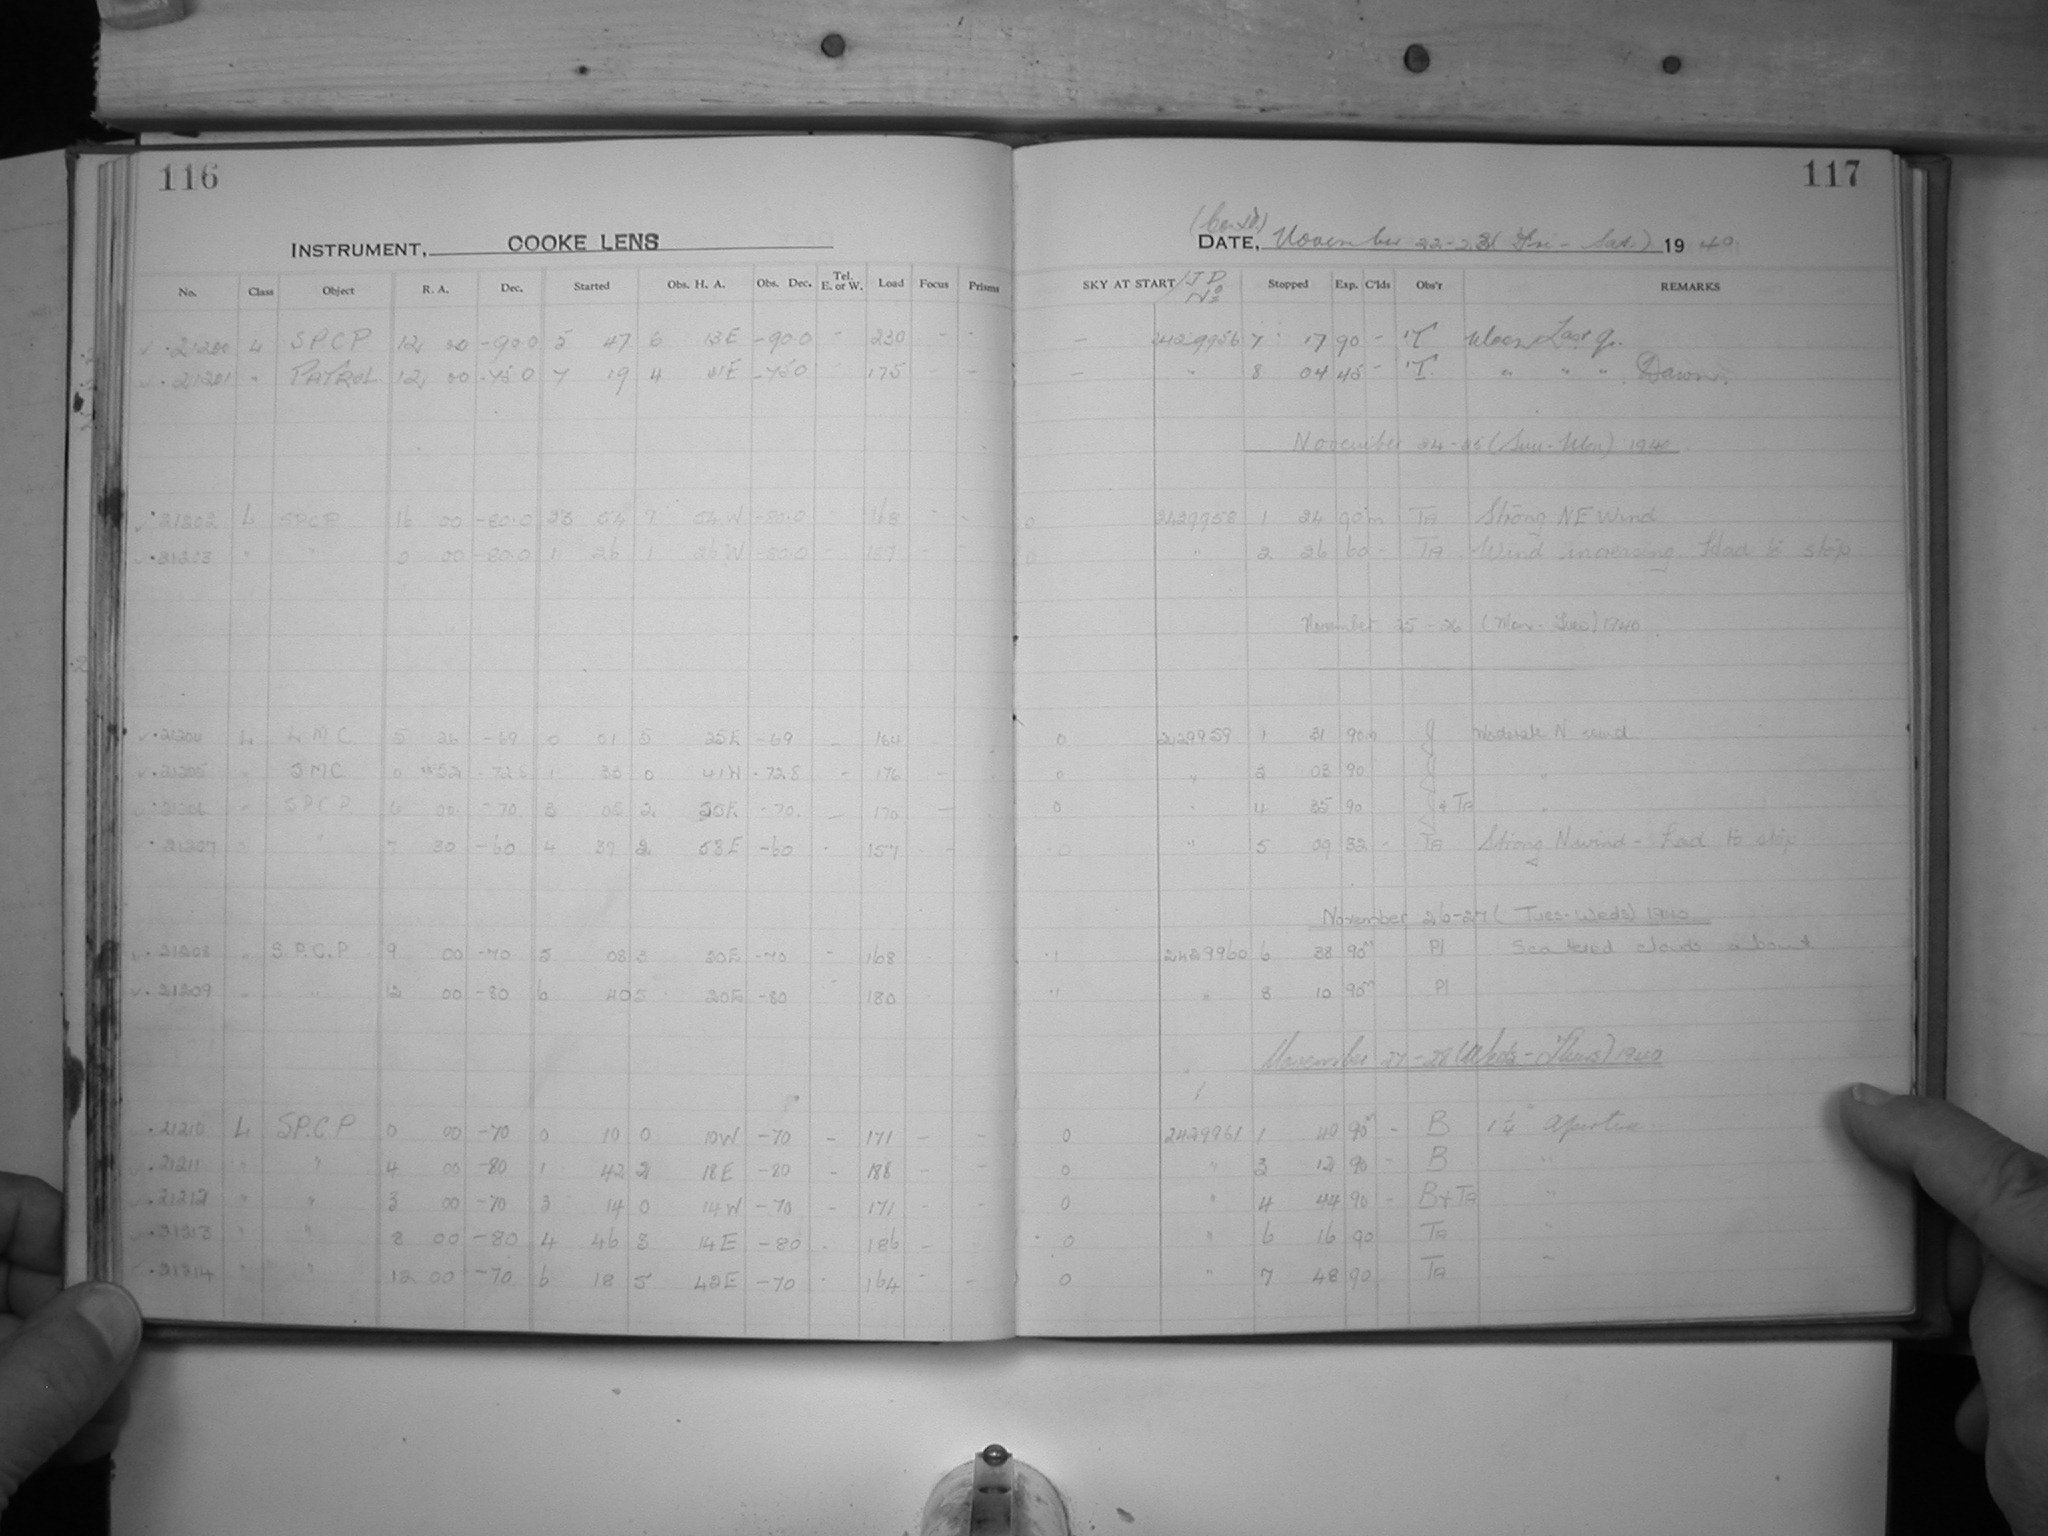 116
INSTRUMENT, COOKE LENS
No. Class Object R. A. Dec. Started Obs. H. A. Obs. Dec. Tel. E. or W. Load Focus Prisms
21200 L S.P.C.P 12 00 -90.0 5 47 6 13E -90.0 - 230 - -
21201 " PATROL 12 00 -75.0 7 19 4 41E -75.0 - 175 - -
21202 L SPCP 16 00 -80.0 23 54 7 54W -80.0 - 168 - -
21203 " " 0 00 -80.0 1 26 1 26W -80.0 - 187 - -
21204 L L M C. 5 26 -69 0 01 5 25E -69 - 164
21205 " S M C. 0 52 -72.8 1 33 0 41W -72.8 - 176
21206 " S.P.C.P. 6 00 -70. 3 05 2 55E -70. - 170 -
21207 " " 7 30 -60 4 37 2 53E -60 - 157 - -
21208 " S.P.C.P 9 00 -70 5 08 3 30E -70 - 168
21209 " " 12 00 -80 6 40 5 20E -80 - 180
21210 L S.P.C.P 0 00 -70 0 10 0 10W -70 - 171 - -
21211 " " 4 00 -80 1 42 2 18E -80 - 188 - -
21212 " " 3 00 -70 3 14 0 14W -70 - 171 - -
21213 " " 8 00 -80 4 46 3 14E -80 - 186 - -
21214 " " 12 00 -70 6 18 5 42E -70 - 164 - -
117
(Cont'd)
DATE, November 22-23 (Fri - Sat.) 1940
SKY AT START / J D Nº Stopped Exp. C'lds Obs'r REMARKS
- 2429956 7 17 90 - T Moon Last Qr.
- " 8 04 45 - T. " " " . Dawn.
November 24-25 (Sun - Mon) 1940
0 2429958 1 24 90m TA Strong NE Wind
0 " 2 26 60 - TA Wind increasing. Had to stop
November 25-26 (Mon - Tues) 1940
0 2429959 1 31 90m J Moderate N wind
0 " 3 03 90 J "
0 " 4 35 90 J & TA "
0 " 5 09 32 - TA Strong N wind - had to stop
November 26-27 (Tues - Weds) 1940
1 2429960 6 38 90m Pl Scattered clouds about
1 " 8 10 90m Pl
November 27-28 (Weds - Thurs) 1940
0 2429961 1 40 90m - B 1¼" Aperture.
0 " 3 12 90 - B "
0 " 4 44 90 - B & TA "
0 " 6 16 90 TA "
0 " 7 48 90 TA "